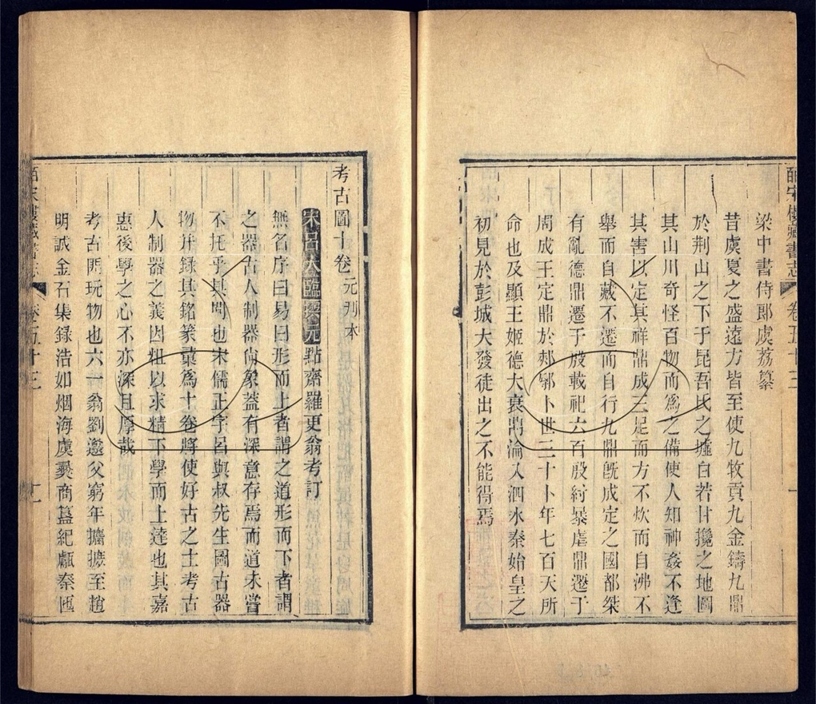 皕宋樓藏書志 卷五十三
梁中書侍郎虞荔纂
昔虞夏之盛遠方皆至使九牧貢九金鑄九鼎
於荆山之下于昆吾氏之墟白若甘攙之地圖
其山川奇怪百物而爲之備使人知神姦不逢
其害以定其祥鼎成三足而方不炊而自沸不
舉而自藏不遷而自行九鼎旣成定之國都桀
有亂德鼎遷于殷載祀六百殷紂暴虐鼎遷于
周成王定鼎於郟鄏卜世三十卜年七百天所
命也及顯王姬德大衰鼎淪入泗水秦始皇之
初見於彭城大發徒出之不能得焉
考古圖十卷 元刊本
宋呂大臨撰 元默齋羅更翁考訂
無名序曰易曰形而上者謂之道形而下者謂
之器古人制器尚象蓋有深意存焉而道未嘗
不托乎其間也宋儒正字呂與叔先生圖古器
物并錄其銘篆彙爲十卷將使好古之士考古
人制器之義因粗以求精下學而上達也其嘉
惠後學之心不亦深且厚哉
考古既玩物也六一翁劉邍父窮年攟摭至趙
明誠金石集錄浩如烟海虞彝商簋紀甗秦匜
皕宋樓藏書志 卷五十三